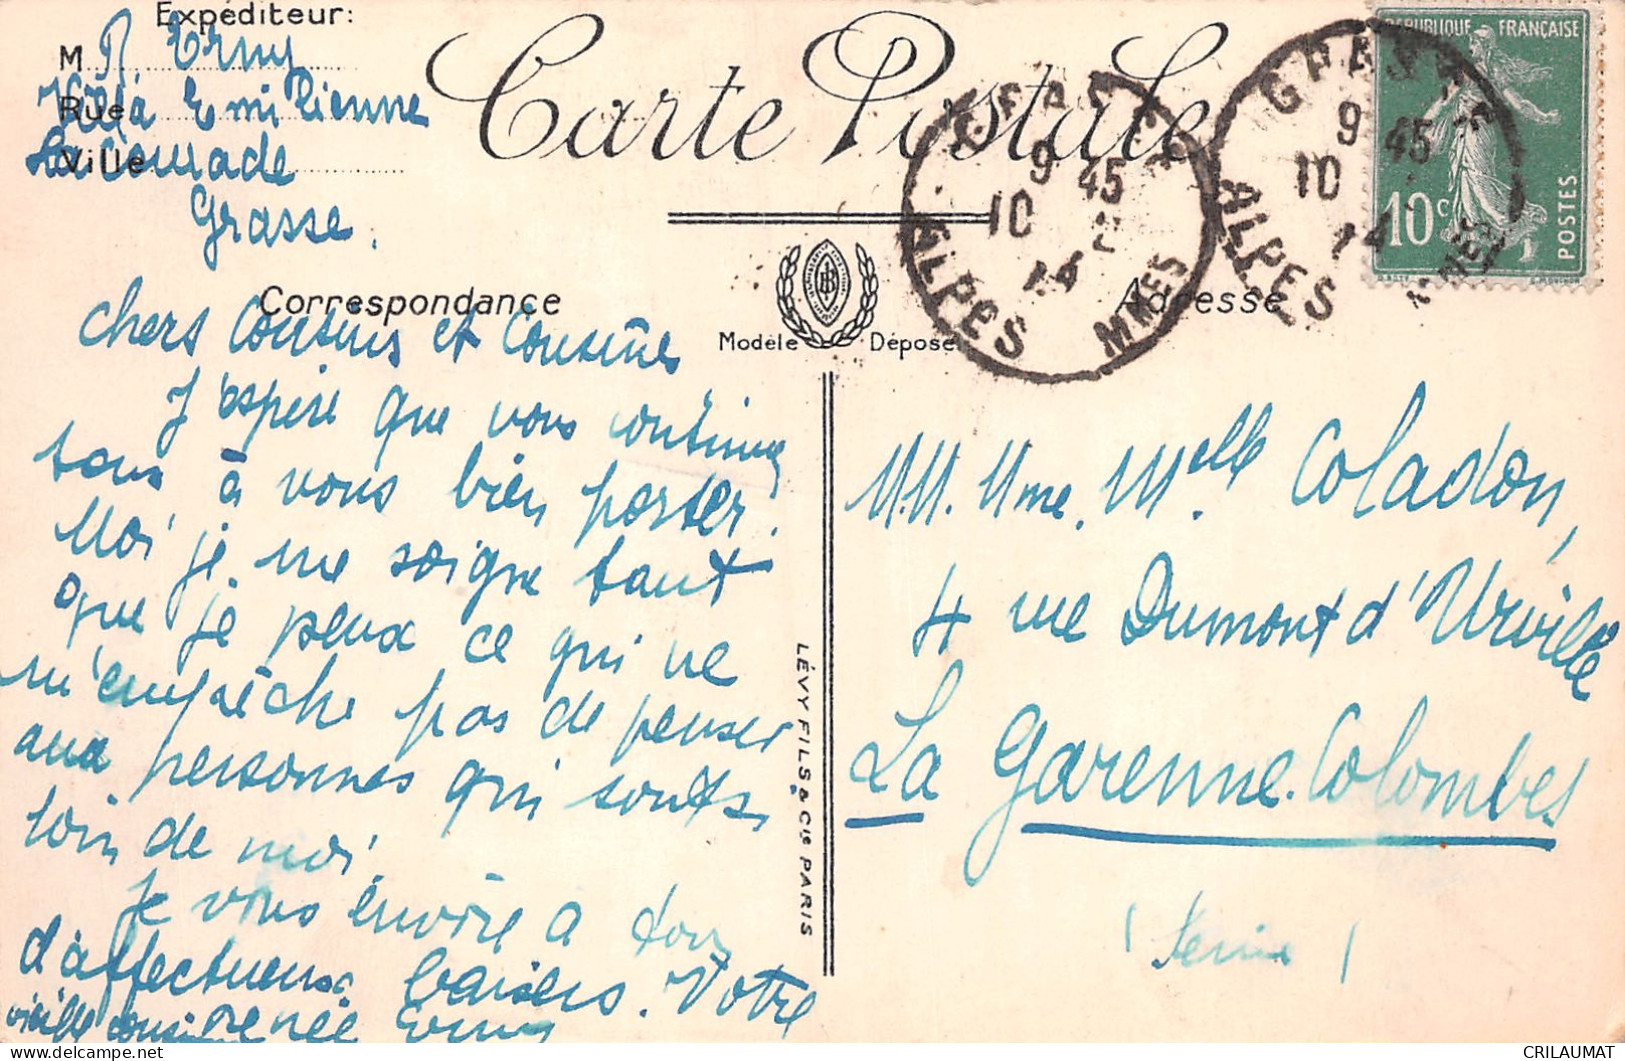 Expéditeur:
M R. Erny
Rue Villa Emilienne
Ville La Comrade
Grasse.
Carte Postale
GRASSE
9 45
10 2
14
ALPES MMES
GRASSE
9 45
10
14
ALPES MMES
RÉPUBLIQUE FRANÇAISE
10c POSTES
Correspondance
Adresse
Modèle Déposé
Chers Cousins et Cousines
J'espère que vous continuez
tous, à vous bien porter.
Moi, je me soigne tant
que je peux ce qui ne
m'empêche pas de penser
aux personnes qui sonts
loin de moi
Je vous envoie a tous
d'affectueux baisers. Votre
vieille cousine Renée Erny
LÉVY FILS & Cie PARIS
M.M. Mme. Melle Coladon,
4 rue Dumont d'Urville
La Garenne-Colombes
(Seine)
CRILAUMAT